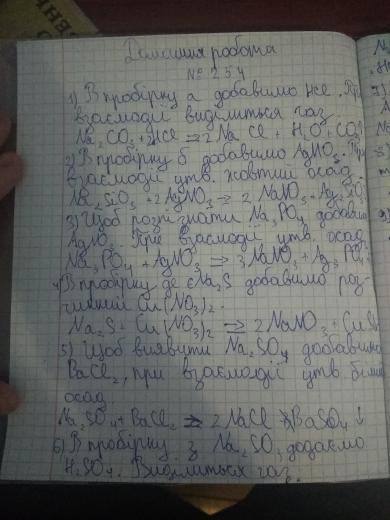 Домашня робота
№ 254
1) В пробірку а добавимо HCl. При
взаємодії виділиться газ
Na₂CO₃ + 2HCl ⇒ 2NaCl + H₂O + CO₂
2) В пробірку б добавимо AgNO₃. При
взаємодії утв. жовтий осад.
Na₂SiO₃ + 2AgNO₃ → 2NaNO₃ + Ag₂SiO₃
3) Щоб розпізнати Na₃PO₄ добавим
AgNO₃. При взаємодії утв. осад
Na₃PO₄ + AgNO₃ → 3NaNO₃ + Ag₃PO₄
4) В пробірку де є Na₂S добавимо роз-
чинний Cu(NO₃)₂.
Na₂S + Cu(NO₃)₂ → 2NaNO₃ + CuS
5) Щоб виявити Na₂SO₄ добавимо
BaCl₂, при взаємодії утв. білий
осад
Na₂SO₄ + BaCl₂ → 2NaCl + BaSO₄ ↓
6) В пробірку з Na₂SO₃ додаємо
H₂SO₄. Виділиться газ.